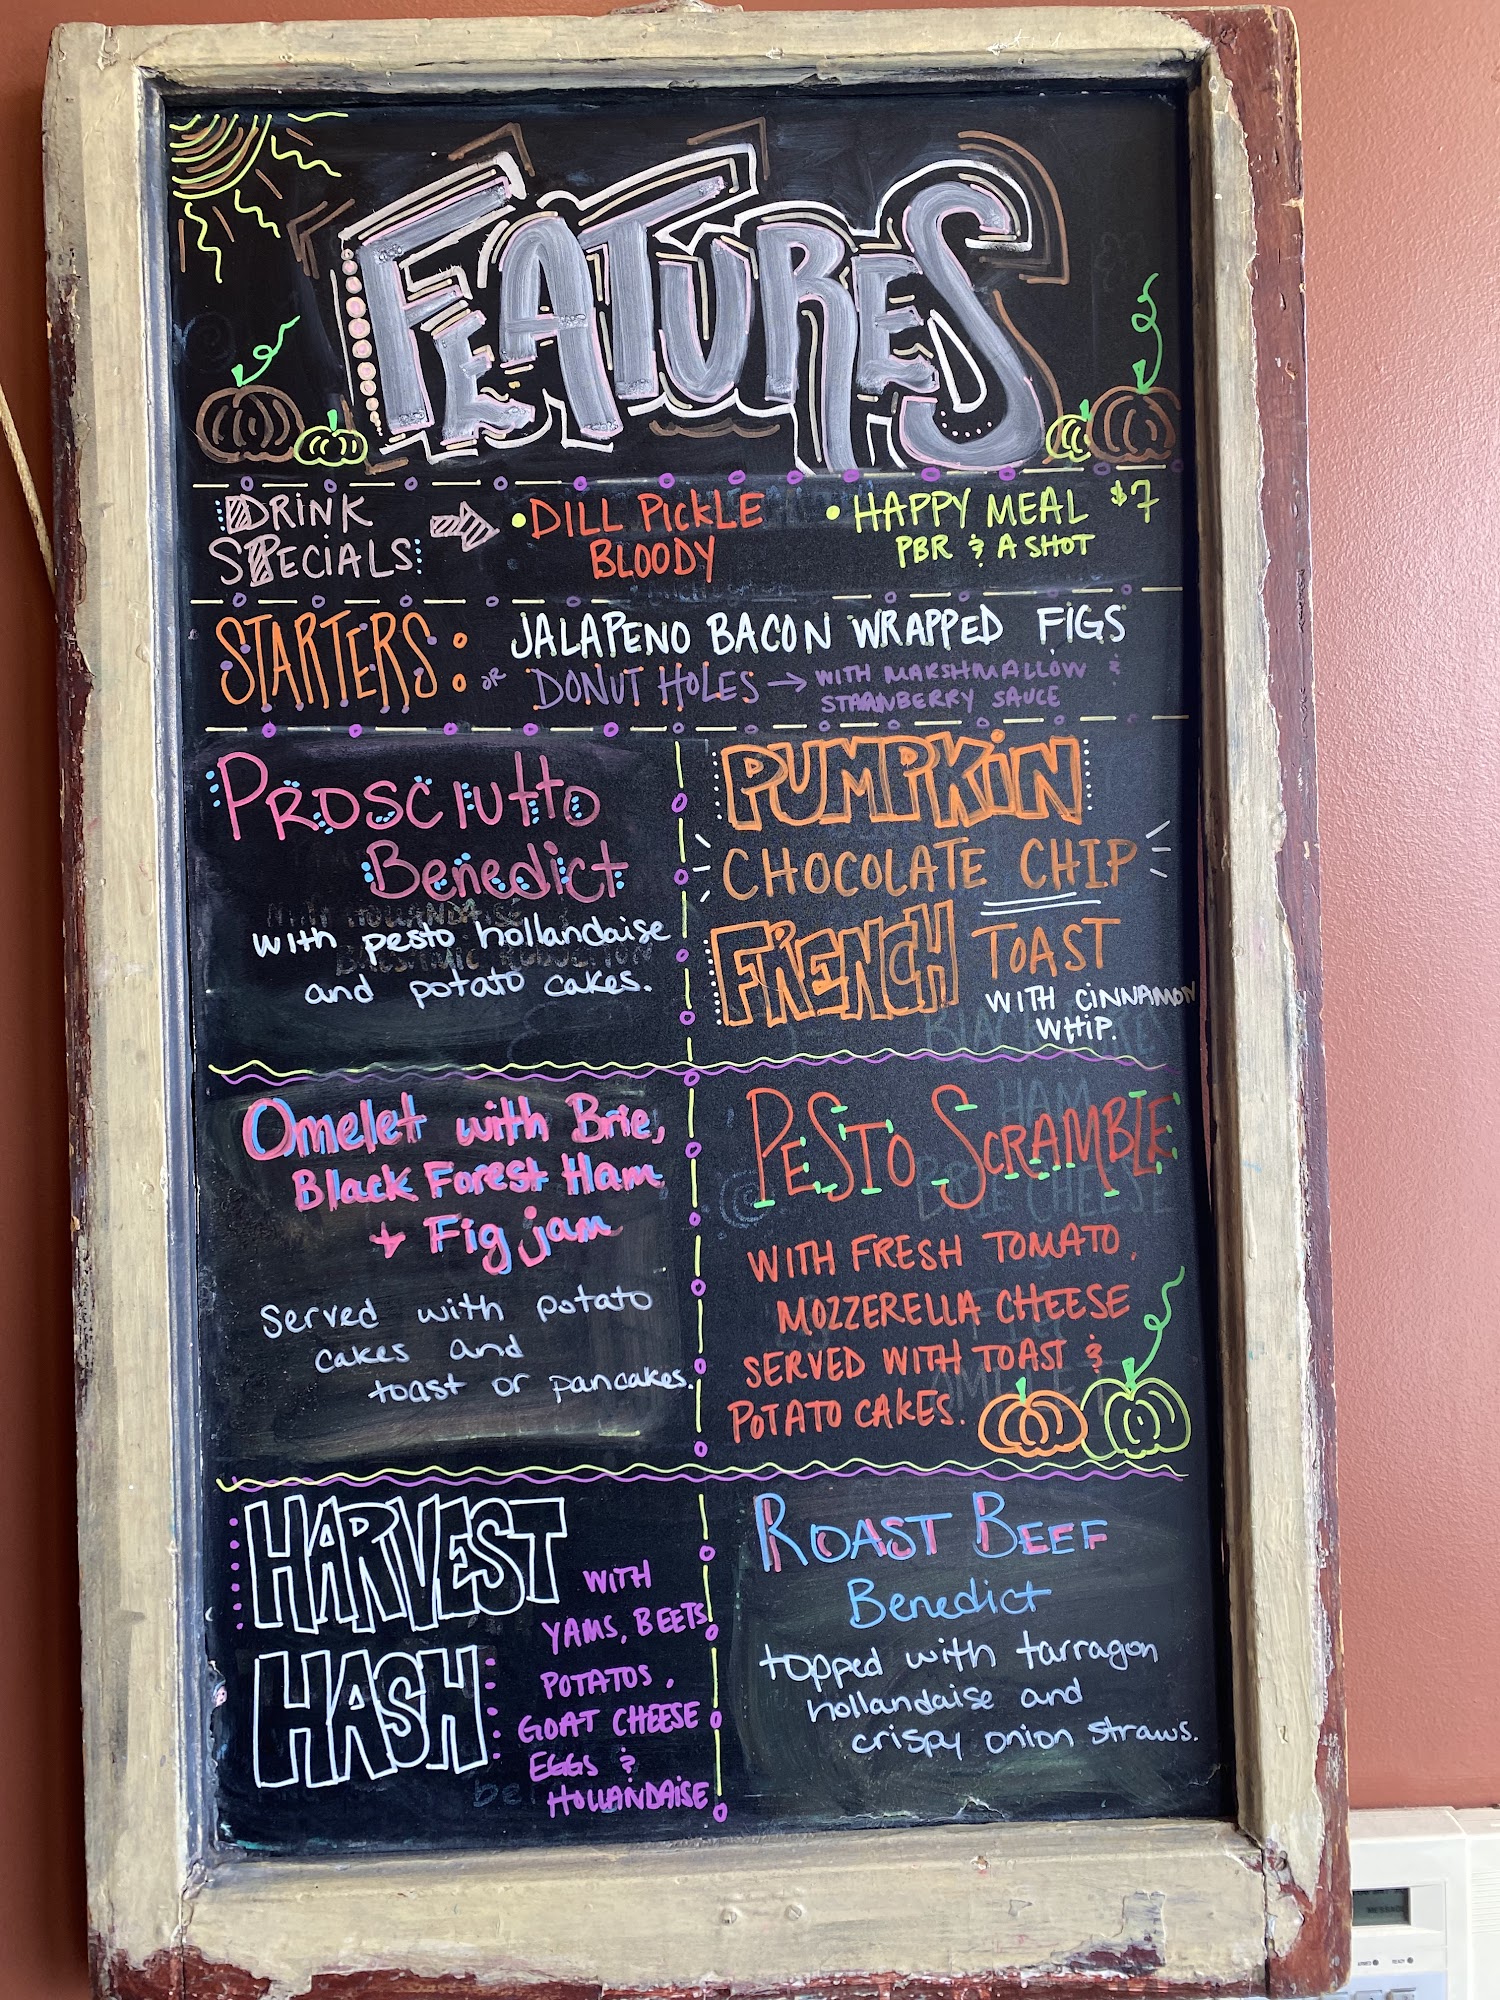 FEATURES
DRINK
SPECIALS
• DILL PICKLE
BLOODY
• HAPPY MEAL $7
PBR & A SHOT
STARTERS:
JALAPENO BACON WRAPPED FIGS
or DONUT HOLES → WITH MARSHMALLOW &
STRAWNBERRY SAUCE
PROSCIUtto
Benedict
with pesto hollandaise
and potato cakes.
PUMPKiN
CHOCOLATE CHIP
FRENCH TOAST
WITH CINNAMON
WHIP.
Omelet with Brie,
Black Forest Ham
+ Fig jam
Served with potato
cakes and
toast or pancakes.
PESTO SCRAMBLE
WITH FRESH TOMATO,
MOZZERELLA CHEESE
SERVED WITH TOAST &
POTATO CAKES.
HARVEST
HASH
WITH
YAMS, BEETS
POTATOS,
GOAT CHEESE
EGGS &
HOLLANDAISE
ROAST BEEF
Benedict
topped with tarragon
hollandaise and
crispy onion straws.